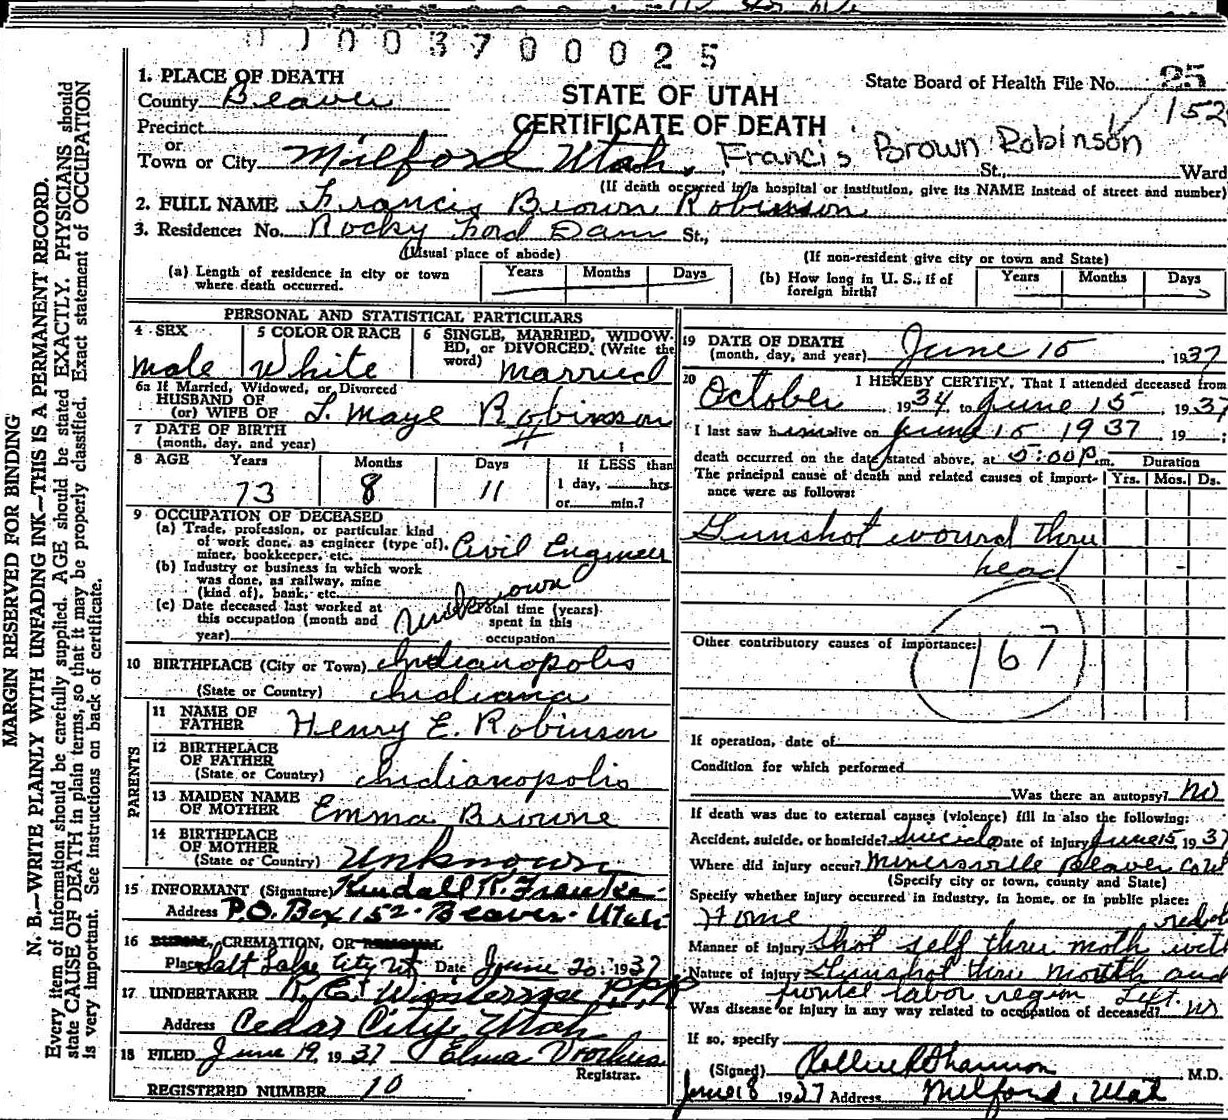 00003700025
1. PLACE OF DEATH
County Beaver
Precinct
or
Town or City Milford Utah.
STATE OF UTAH
CERTIFICATE OF DEATH
State Board of Health File No. 25
152
Francis Brown Robinson
St., Ward
(If death occurred in a hospital or institution, give its NAME instead of street and number)
2. FULL NAME Francis Brown Robinson
3. Residence: No. Rocky Ford Dam St.,
(Usual place of abode) (If non-resident give city or town and State)
(a) Length of residence in city or town where death occurred. Years Months Days
(b) How long in U. S., if of foreign birth? Years Months Days
MARGIN RESERVED FOR BINDING
N. B.—WRITE PLAINLY WITH UNFADING INK—THIS IS A PERMANENT RECORD.
Every item of information should be carefully supplied. AGE should be stated EXACTLY. PHYSICIANS should
state CAUSE OF DEATH in plain terms, so that it may be properly classified. Exact statement of OCCUPATION
is very important. See instructions on back of certificate.
PERSONAL AND STATISTICAL PARTICULARS
4 SEX male
5 COLOR OR RACE White
6 SINGLE, MARRIED, WIDOWED, or DIVORCED. (Write the word) married
6a If Married, Widowed, or Divorced
HUSBAND OF
(or) WIFE OF L. Maye Robinson
7 DATE OF BIRTH
(month, day, and year)
8 AGE Years 73 Months 8 Days 11
If LESS than
1 day, hrs
or min.?
9 OCCUPATION OF DECEASED
(a) Trade, profession, or particular kind
of work done, as engineer (type of),
miner, bookkeeper, etc. Civil Engineer
(b) Industry or business in which work
was done, as railway, mine
(kind of), bank, etc. Unknown
(c) Date deceased last worked at
this occupation (month and
year)
Total time (years)
spent in this
occupation
10 BIRTHPLACE (City or Town) Indianopolis
(State or Country) Indiana
PARENTS
11 NAME OF
FATHER Henry E. Robinson
12 BIRTHPLACE
OF FATHER
(State or Country) Indianopolis
13 MAIDEN NAME
OF MOTHER Emma Browne
14 BIRTHPLACE
OF MOTHER
(State or Country) Unknown
15 INFORMANT (Signature) Kendall R. Franke
Address P.O. Box 152 - Beaver - Utah
16 BURIAL, CREMATION, OR REMOVAL
Place Salt Lake City Ut Date June 20. 1937
17 UNDERTAKER
Address Cedar City, Utah
18 FILED June 19, 1937 Elma Voorhees
Registrar.
REGISTERED NUMBER 10
19 DATE OF DEATH
(month, day, and year) June 15 1937
20 I HEREBY CERTIFY, That I attended deceased from
October 1934, to June 15, 1937
I last saw him alive on June 15 1937, 19 ;
death occurred on the date stated above, at 5:00 P.m. Duration
The principal cause of death and related causes of importance were as follows: Yrs. Mos. Ds.
Gunshot wound thru
head
Other contributory causes of importance:
167
If operation, date of
Condition for which performed
Was there an autopsy? no
If death was due to external causes (violence) fill in also the following:
Accident, suicide, or homicide? Suicide Date of injury June 15, 1937
Where did injury occur? Minersville Beaver Co U
(Specify city or town, county and State)
Specify whether injury occurred in industry, in home, or in public place:
Home
Manner of injury Shot self thru moth with
Nature of injury Gunshot thru mouth and
frontel labor region Left.
Was disease or injury in any way related to occupation of deceased? no
If so, specify
(Signed) M.D.
June 18 1937 Address Milford, Utah